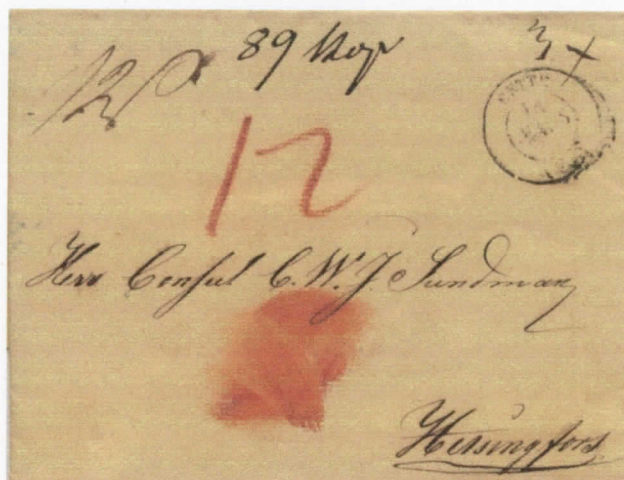 89 Kop
3 +
12
Herr Consul C. W. J. Sundman
Helsingfors